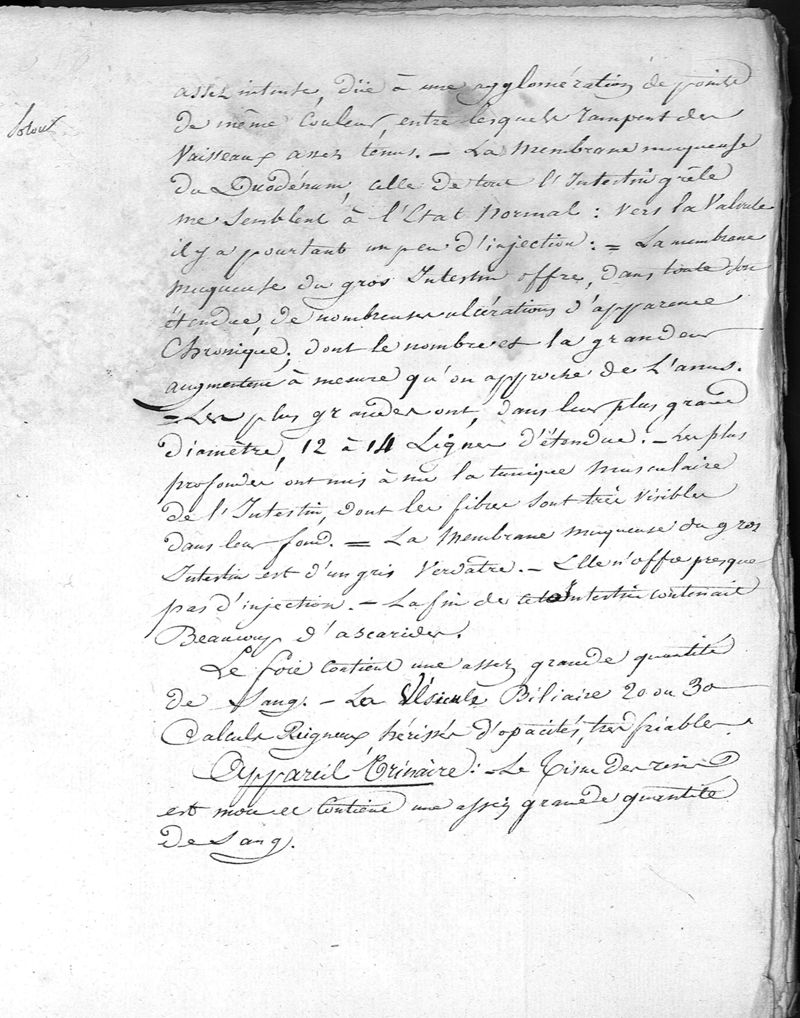 assez intense, düe à une agglomération de points
de même Couleur, entre lesquels rampent des
Vaisseaux assez tenus. — La Membrane muqueuse
du Duodénum, celle de tout l'Intestin grêle
me Semblent à l'Etat Normal : vers la Valvule
il y a pourtant un peu d'injection : = La membrane
muqueuse du gros Intestin offre, dans toute son
étendue, de nombreuses ulcérations d'apparence
Chronique, dont le nombre et la grandeur
augmentent à mesure qu'on approche de L'anus.
— Les plus grandes ont, dans leur plus grand
diamètre, 12 à 14 Lignes d'étendue. — Les plus
profondes ont mis à nu la tunique Musculaire
de l'Intestin, dont les fibres sont très visibles
dans leur fond. = La Membrane muqueuse du gros
Intestin est d'un gris Verdâtre. — Elle n'offre presque
pas d'injection. — La fin de Intestin contenait
Beaucoup d'ascarides.
Le foie contient une assez grande quantité
de Sang. — La Vésicule Biliaire 20 ou 30
Calculs hérissés d'opacités, très friables.
Appareil Urinaire : — Le Tissu des reins
est mou et Contient une assez grande quantité
de Sang.